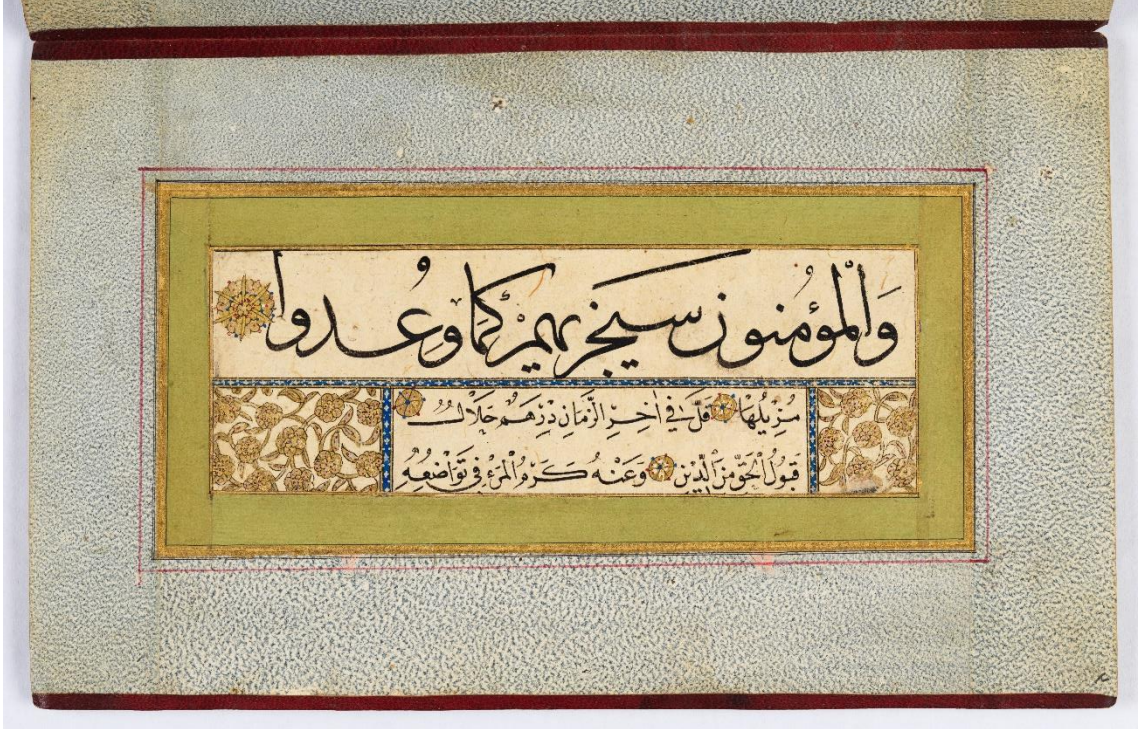 وَالْمؤمُنون سيخزيهم كَمَا وعُدوا
مُزِيلُهَا قَلَّ فِي اٰخِرِ الزَّمَانِ دِرْهَمٌ حَلَالٌ
قَبُولُ الْحَقِّ مِنَ الدِّيْنِ وَعَنْهُ كَرَمُ الْمَرْءِ فِي تَوَاضُعِهِ